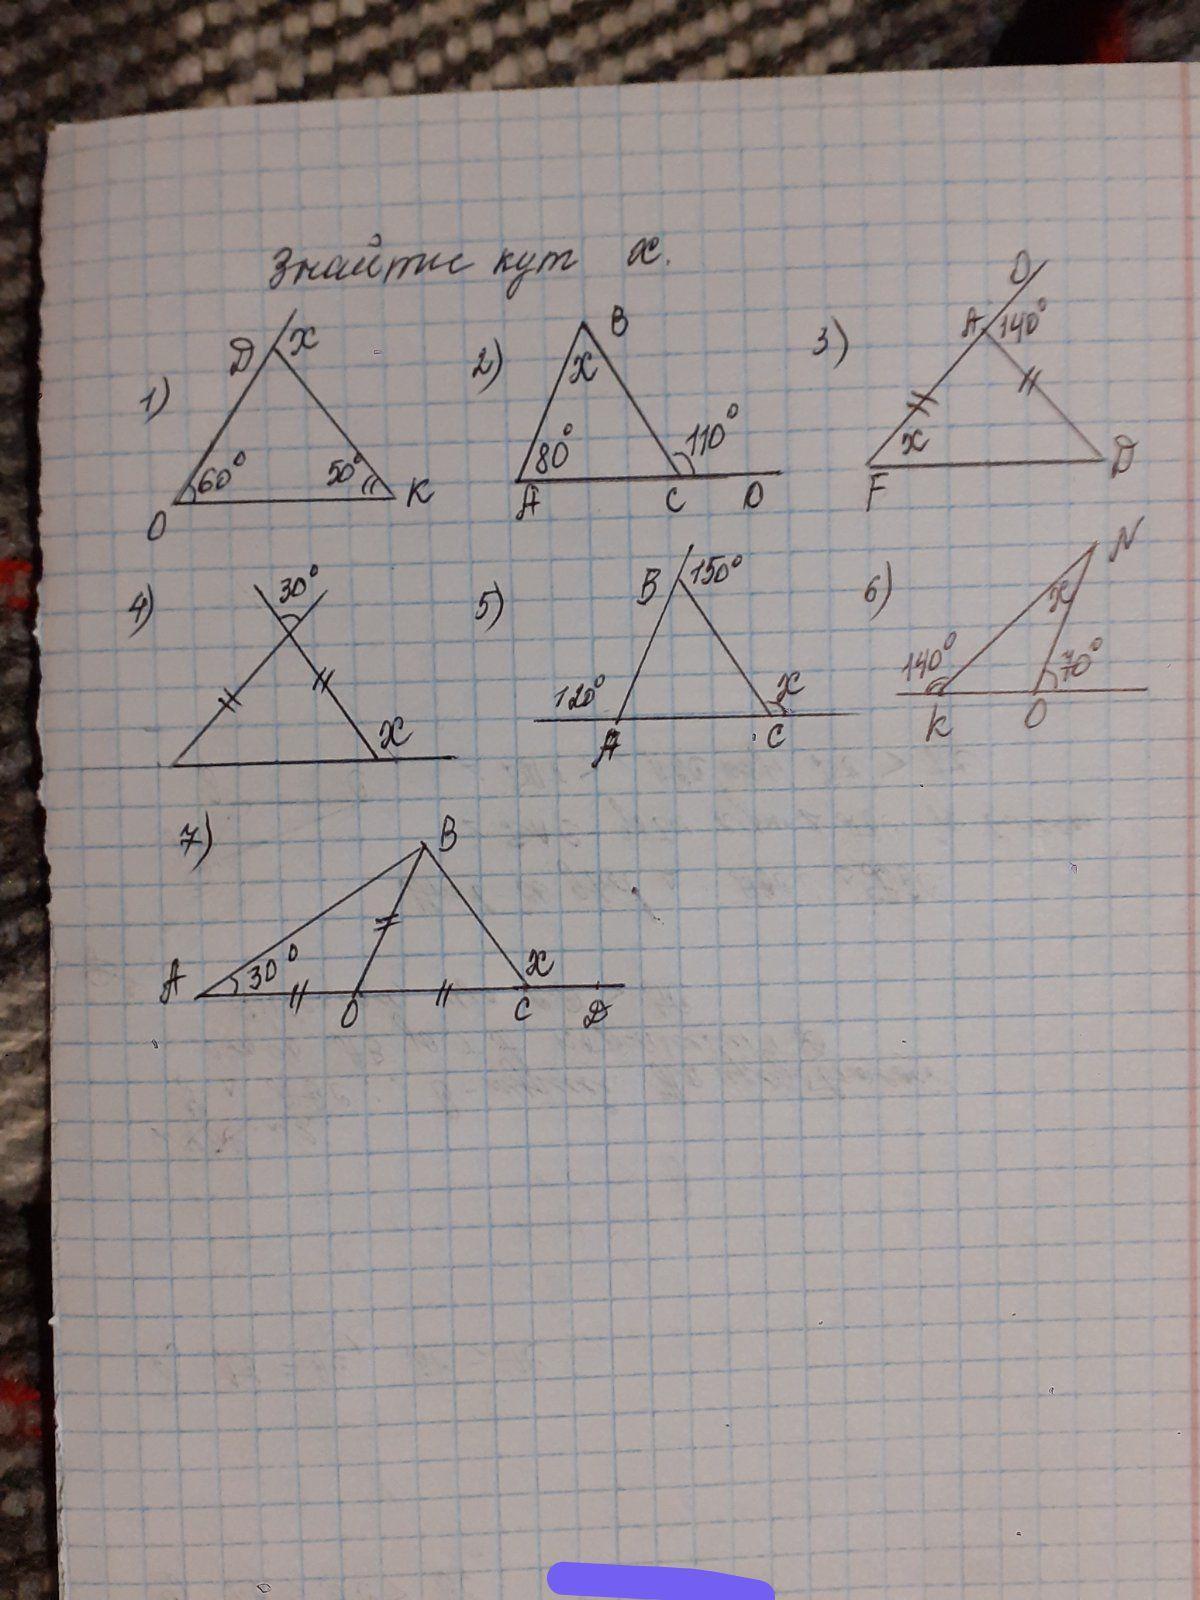 Знайти кут x.
1) D x 60° 50° O K
2) B x 80° 110° A C D
3) O A 140° x F D
4) 30° x
5) B 150° 120° x A C
6) N x 140° 70° K O
7) B A 30° x O C D